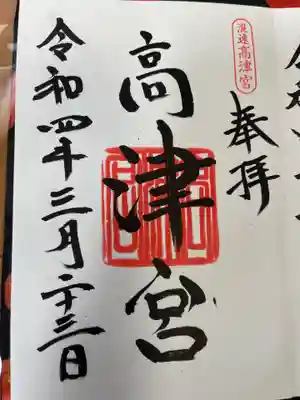 浪速高津宮
奉拝
高津宮
令和四年三月二十三日